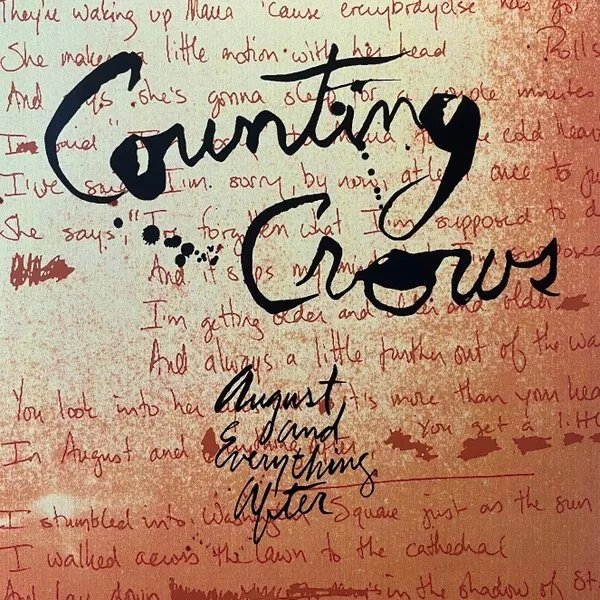 They're waking up Maria 'cause everybodyelse has got
She makes a little motion with her head
Rolls
And says she's gonna sleep for a couple minutes
I said
I've said I'm sorry by now, at least once to ju
She says, "I've forgotten what I'm supposed to d
And it slips my mind
I'm getting older and older and older
And always a little further out of the wa
You look into her it's more than your hea
In August and
You get a litt
I stumbled into Washington Square just as the sun
I walked across the lawn to the cathedral
And lay down in the shadow of St.
Counting
Crows
August
and
Everything
After